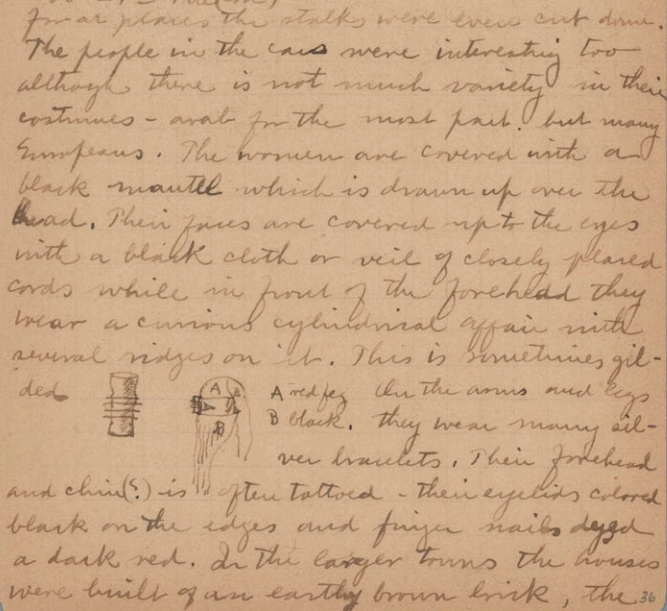 places the stalks were even cut down.
The people in the cars were interesting too
although there is not much variety in their
costumes - arab for the most part. but many
Europeans. The women are covered with a
black mantel which is drawn up over the
head. Their faces are covered up to the eyes
with a black cloth or veil of closely placed
cords while in front of the forehead they
wear a curious cylindrical affair with
several ridges on it. This is sometimes gil-
ded
A B
B
A red fez
B black.
On the arms and legs
they wear many sil-
ver bracelets. Their forehead
and chin(?) is often tattoed - their eyelids colored
black on the edges and finger nails dyed
a dark red. In the larger towns the houses
were built of an earthy brown brick, the
36